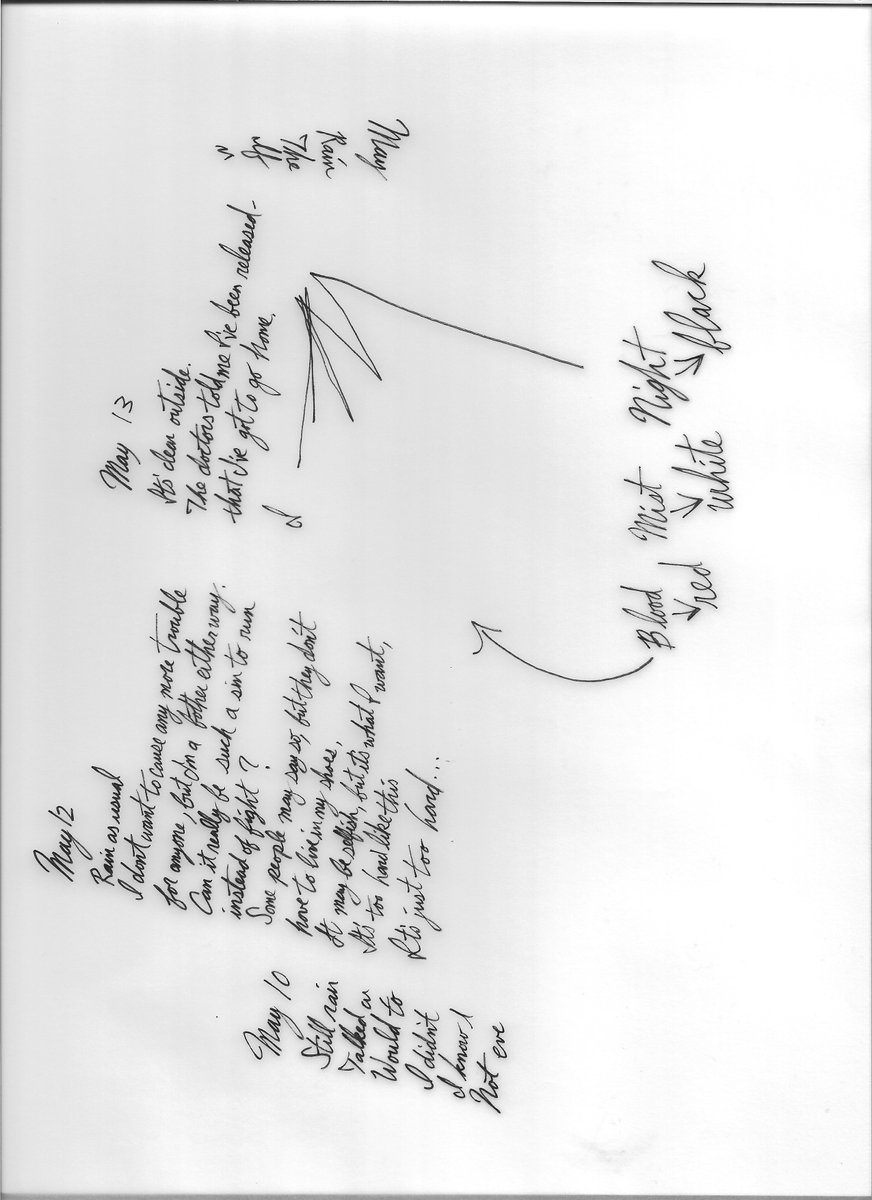 May 10
Still rain
Talked a
Would to
I didn't
I know I
Not eve
May 12
Rain as usual
I don't want to cause any more trouble
for anyone, but I'm a bother either way.
Can it really be such a sin to run
instead of fight?
Some people may say so, but they don't
have to live in my shoes.
It may be selfish, but it's what I want,
It's too hard like this
It's just too hard...
May 13
It's clear outside.
The doctors told me I've been released-
that I've got to go home.
I
May
Rain
The
If
Blood Mist Night
red White black